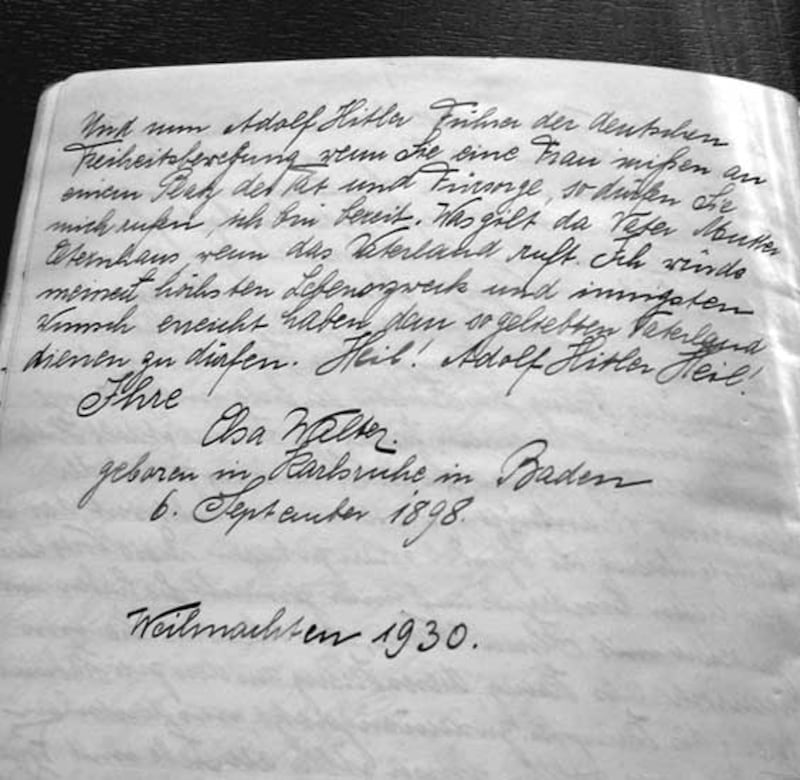 Und nun Adolf Hitler Führer der deutschen
Freiheitsbewebung wenn Sie eine Frau wißen an
einem Platz der Tat und Fürsorge, so dürfen Sie
mich rufen, ich bin bereit. Was gilt da Vater Mutter
Elternhaus wenn das Vaterland ruft. Ich würde
meinen höchsten Lebenszweck und innigsten
Wunsch erreicht haben dem so geliebten Vaterland
dienen zu dürfen. Heil! Adolf Hitler Heil!
Ihre
Elsa Walter.
geboren in Karlsruhe in Baden
6. September 1898.
Weihnachten 1930.